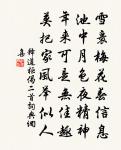 雪裹梅花無信息
池中月色夜精神
年來可是無佳趣
莫把家風舉似人
釋道樞偈二首詞典網
集